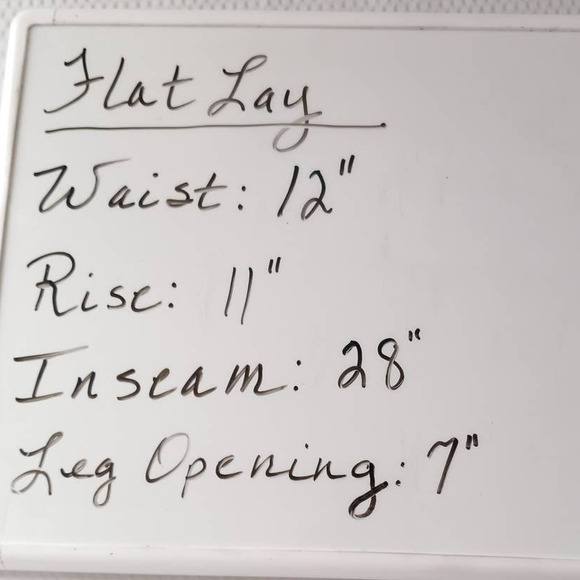 Flat Lay
Waist: 12"
Rise: 11"
Inseam: 28"
Leg Opening: 7"